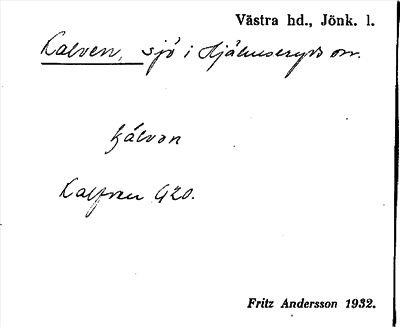 Västra hd., Jönk. l.
Kalven, sjö i Hjälmseryds sn.
kálvan
Kalfven G20.
Fritz Andersson 1932.